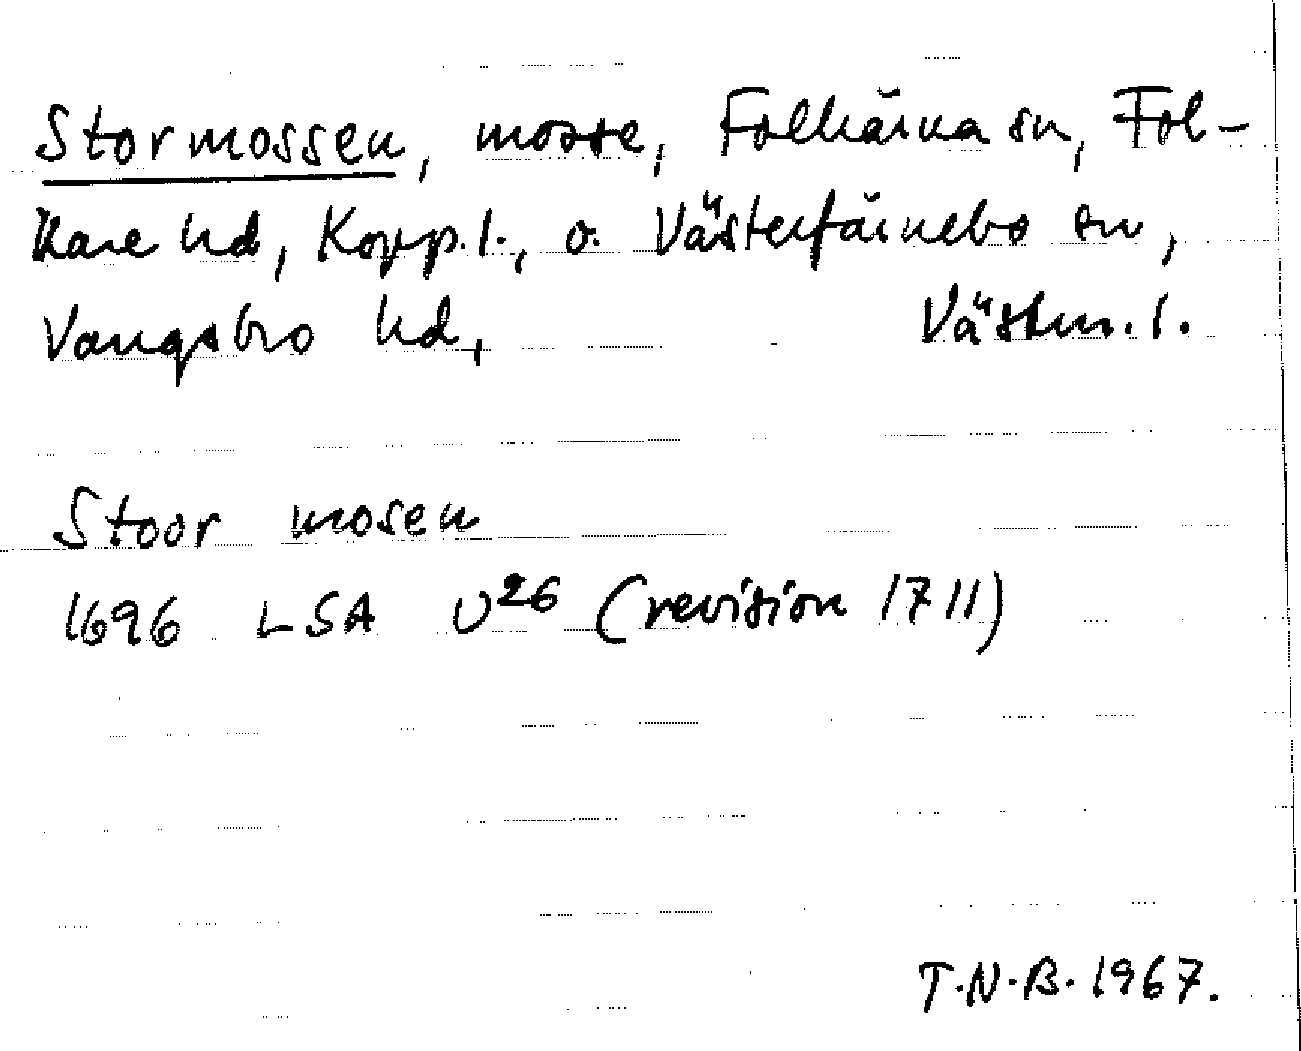 Stormossen, mosse, Folkärna sn, Fol-
kare hd, Kopp. l., o. Västerfärnebo sn,
Vangsbro hd, Västm. l.
Stoor mosen
1696 LSA U26 (revision 1711)
T.N.B. 1967.